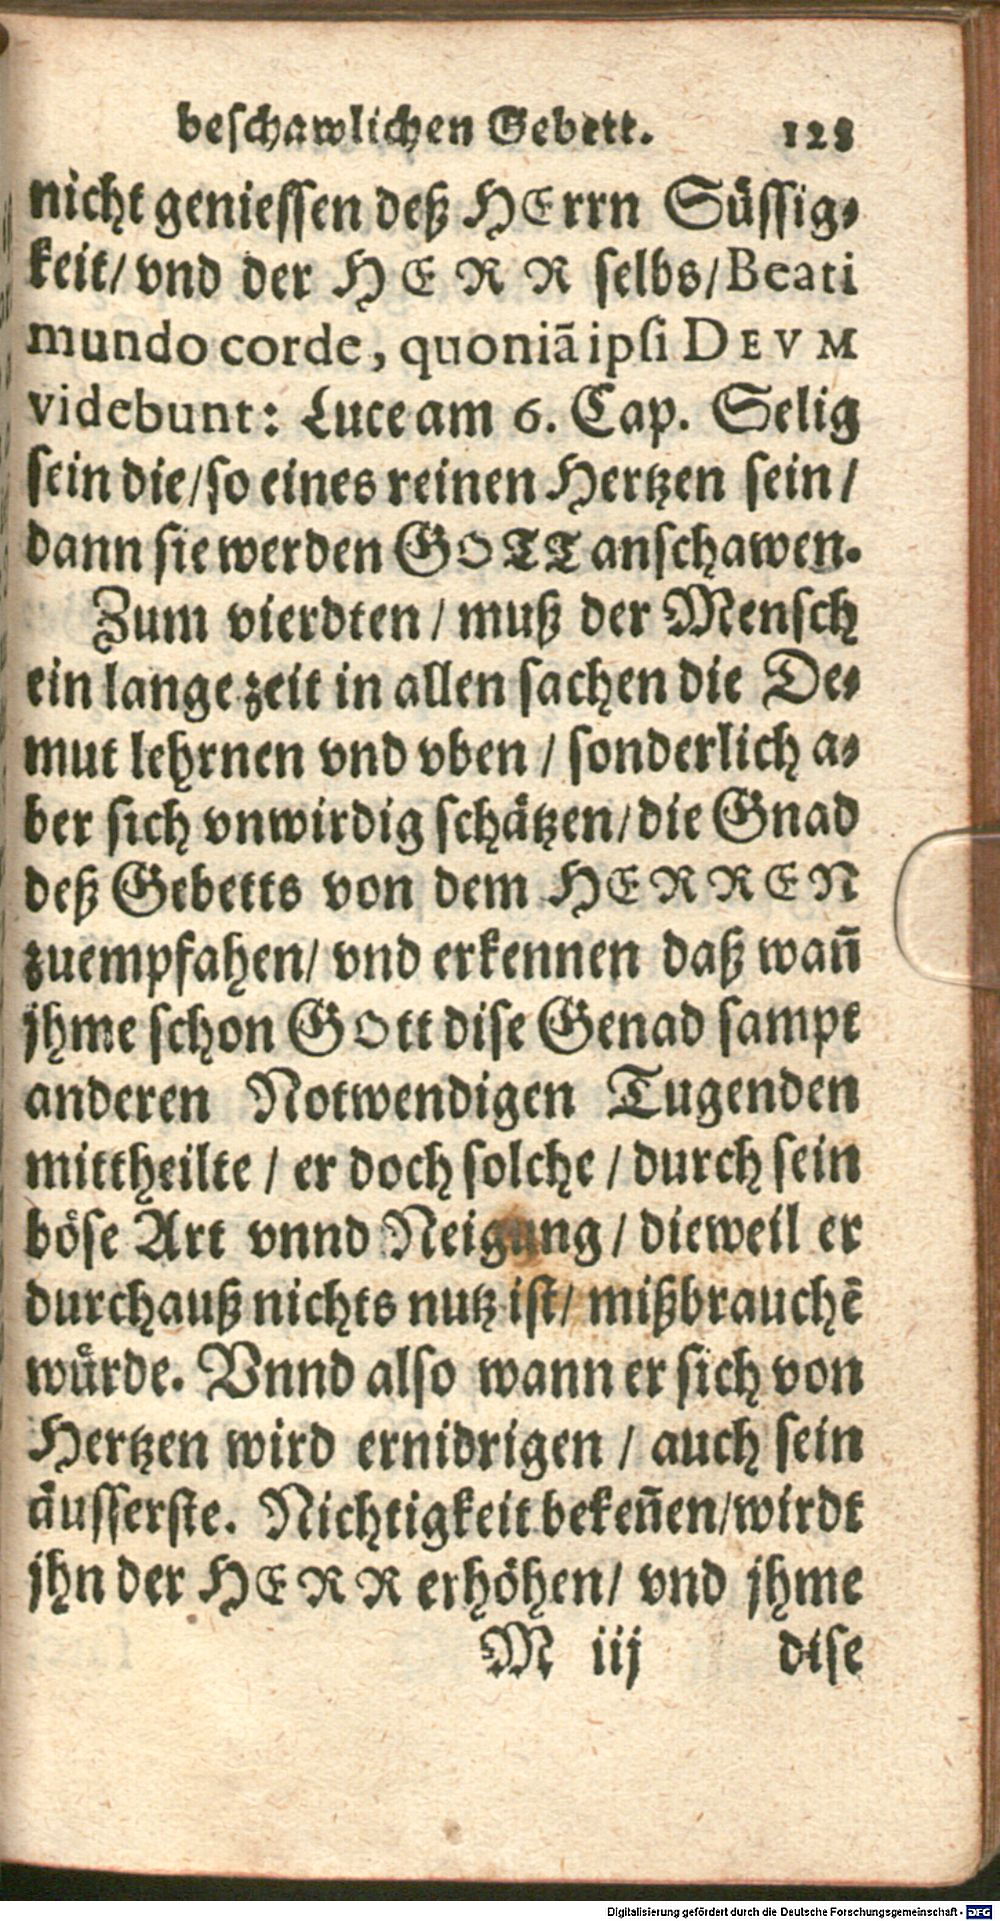 beschawlichen Gebett. 128
nicht geniessen deß HErrn Süssig-
keit/ vnd der HERR selbs/ Beati
mundo corde, quoniã ipsi DEVM
videbunt: Luce am 6. Cap. Selig
sein die/ so eines reinen Hertzen sein/
dann sie werden GOTT anschawen.
Zum vierdten/ muß der Mensch
ein lange zeit in allen sachen die De-
mut lehrnen vnd vben/ sonderlich a-
ber sich vnwirdig schätzen/ die Gnad
deß Gebetts von dem HERREN
zuempfahen/ vnd erkennen daß wañ
jhme schon GOtt dise Genad sampt
anderen Notwendigen Tugenden
mittheilte/ er doch solche/ durch sein
böse Art vnnd Neigung/ dieweil er
durchauß nichts nutz ist/ mißbrauchẽ
würde. Vnnd also wann er sich von
Hertzen wird ernidrigen/ auch sein
äusserste. Nichtigkeit bekeñen/ wirdt
jhn der HERR erhöhen/ vnd jhme
M iij dise
Digitalisierung gefördert durch die Deutsche Forschungsgemeinschaft - DFG